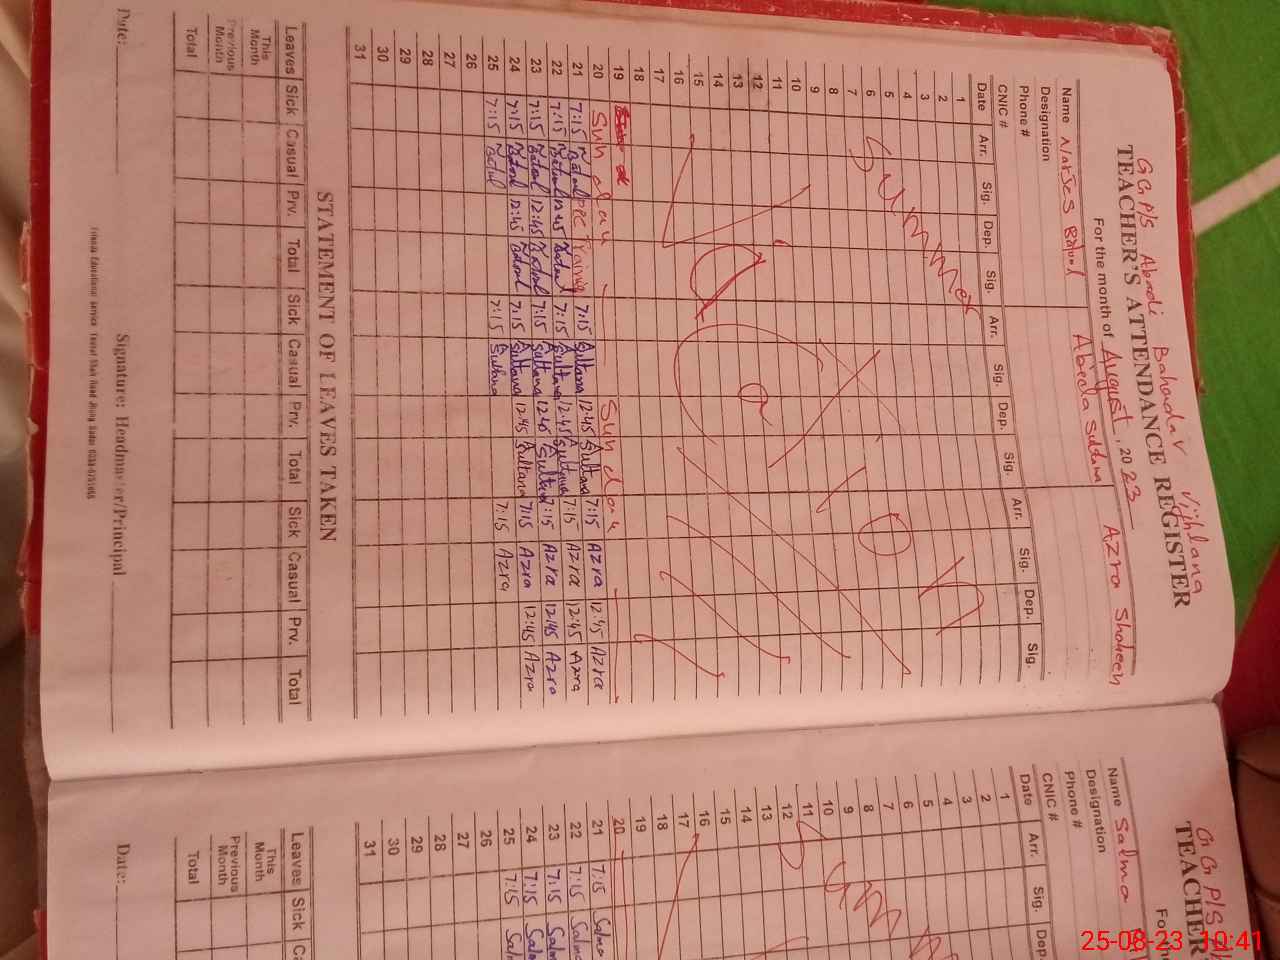 GGP/S Abadi Bahadar Vijhlana
TEACHER'S ATTENDANCE REGISTER
For the month of August, 2023
Name Narjes Batool Abeda Sultana Azra Shaheen
Designation
Phone #
CNIC #
Date Arr. Sig. Dep. Sig. Arr. Sig. Dep. Sig. Arr. Sig. Dep. Sig.
1
2
3
4
5
6
7
8
9
10
11
12
13
14
15
16
17
18
19
20 Sunday Sunday
21 7:15 N Batool PEC Training 7:15 Sultana 12:45 Sultana 7:15 Azra 12:45 Azra
22 7:15 Batool 12:45 Batool 7:15 Sultana 12:45 Sultana 7:15 Azra 12:45 Azra
23 7:15 Batool 12:45 Batool 7:15 Sultana 12:45 Sultana 7:15 Azra 12:45 Azra
24 7:15 Batool 12:45 Batool 7:15 Sultana 12:45 Sultana 7:15 Azra 12:45 Azra
25 7:15 N Batool 7:15 Sultana 7:15 Azra
26
27
28
29
30
31
Summer Vacation
STATEMENT OF LEAVES TAKEN
Leaves Sick Casual Prv. Total Sick Casual Prv. Total Sick Casual Prv. Total
This Month
Previous Month
Total
Date: Signature: Headmaster/Principal
GGP/S
TEACHER
For
Name Salma
Designation
Phone #
CNIC #
Date Arr. Sig. Dep.
1
2
3
4
5
6
7
8
9
10
11
12
13
14
15
16
17
18
19
20
21 7:15 Salma
22 7:15 Salma
23 7:15 Salma
24 7:15 Salma
25 7:15 Sal
26
27
28
29
30
31
Summ
Leaves Sick Ca
This Month
Previous Month
Total
Date:
25-08-23 10:41